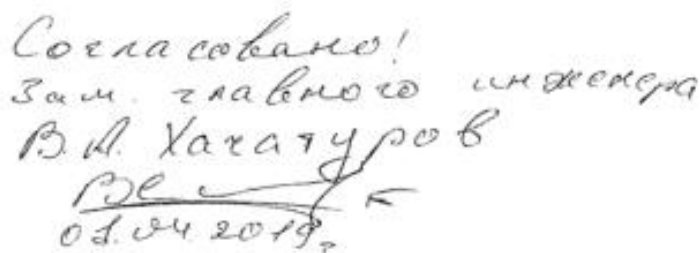 Согласовано!
Зам. главного инженера
В.А. Хачатуров
01.04.2019г